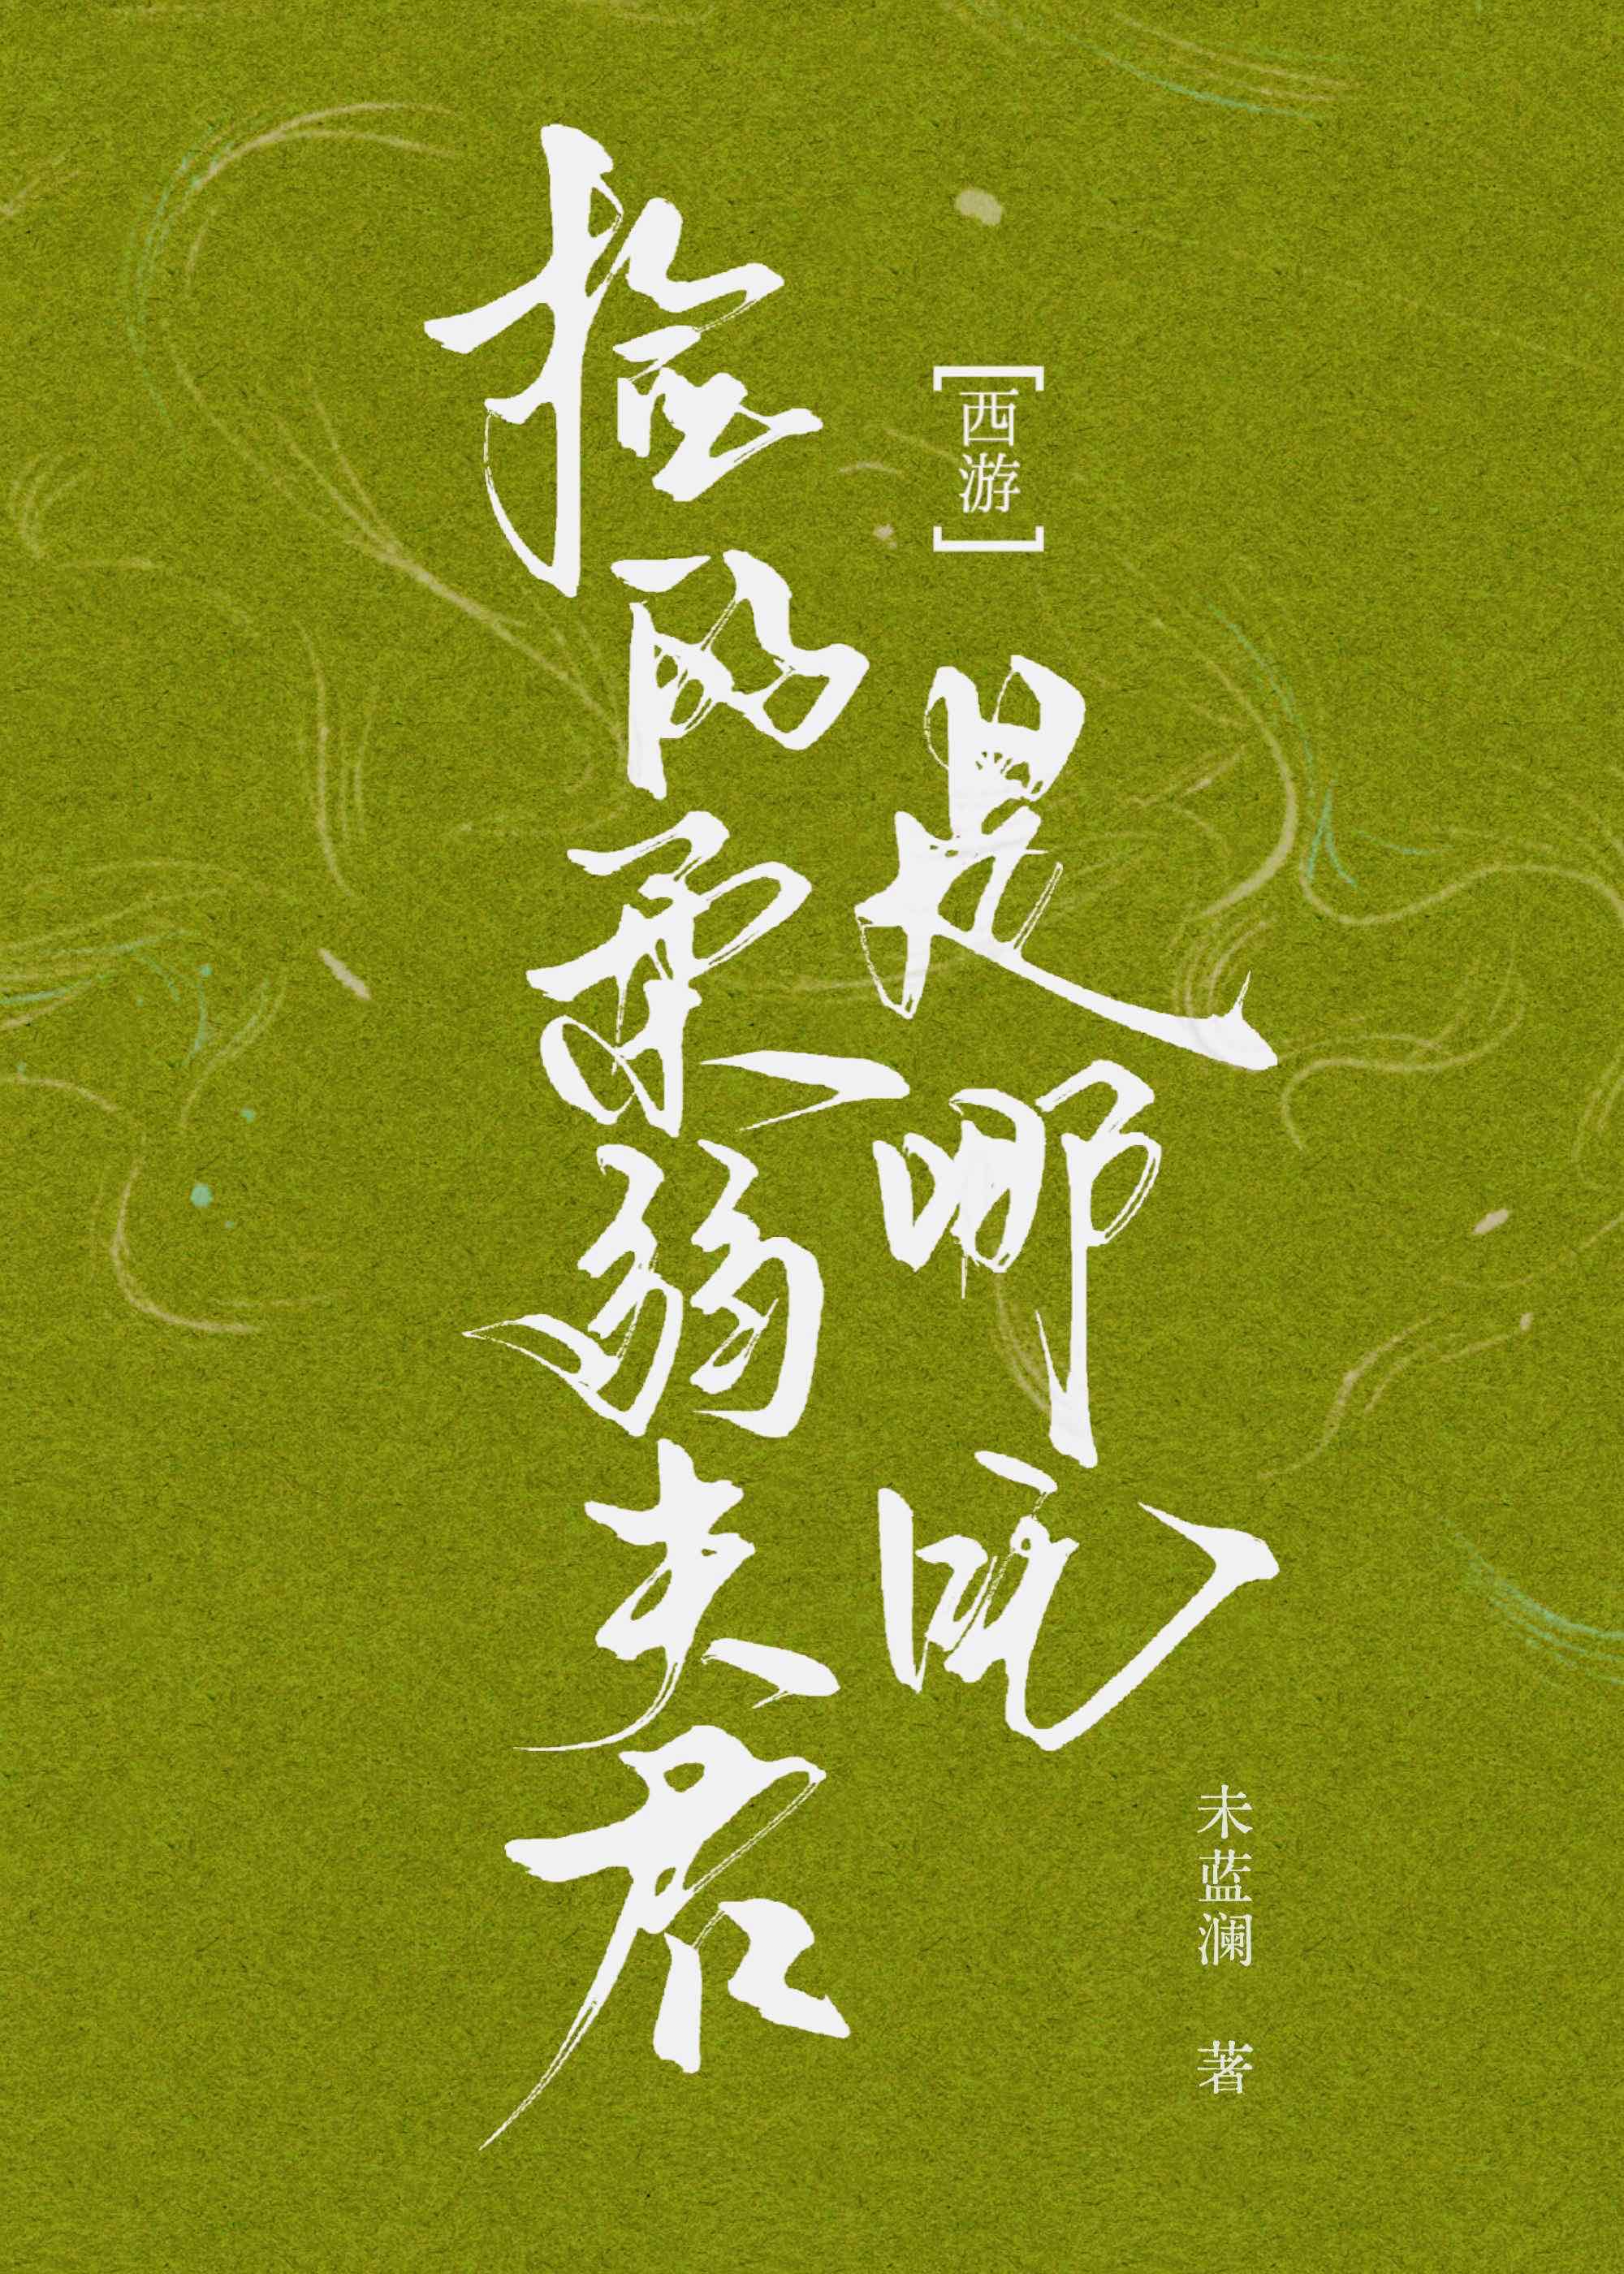 捡的柔弱夫君
[西游]
是哪吒
未蓝澜 著